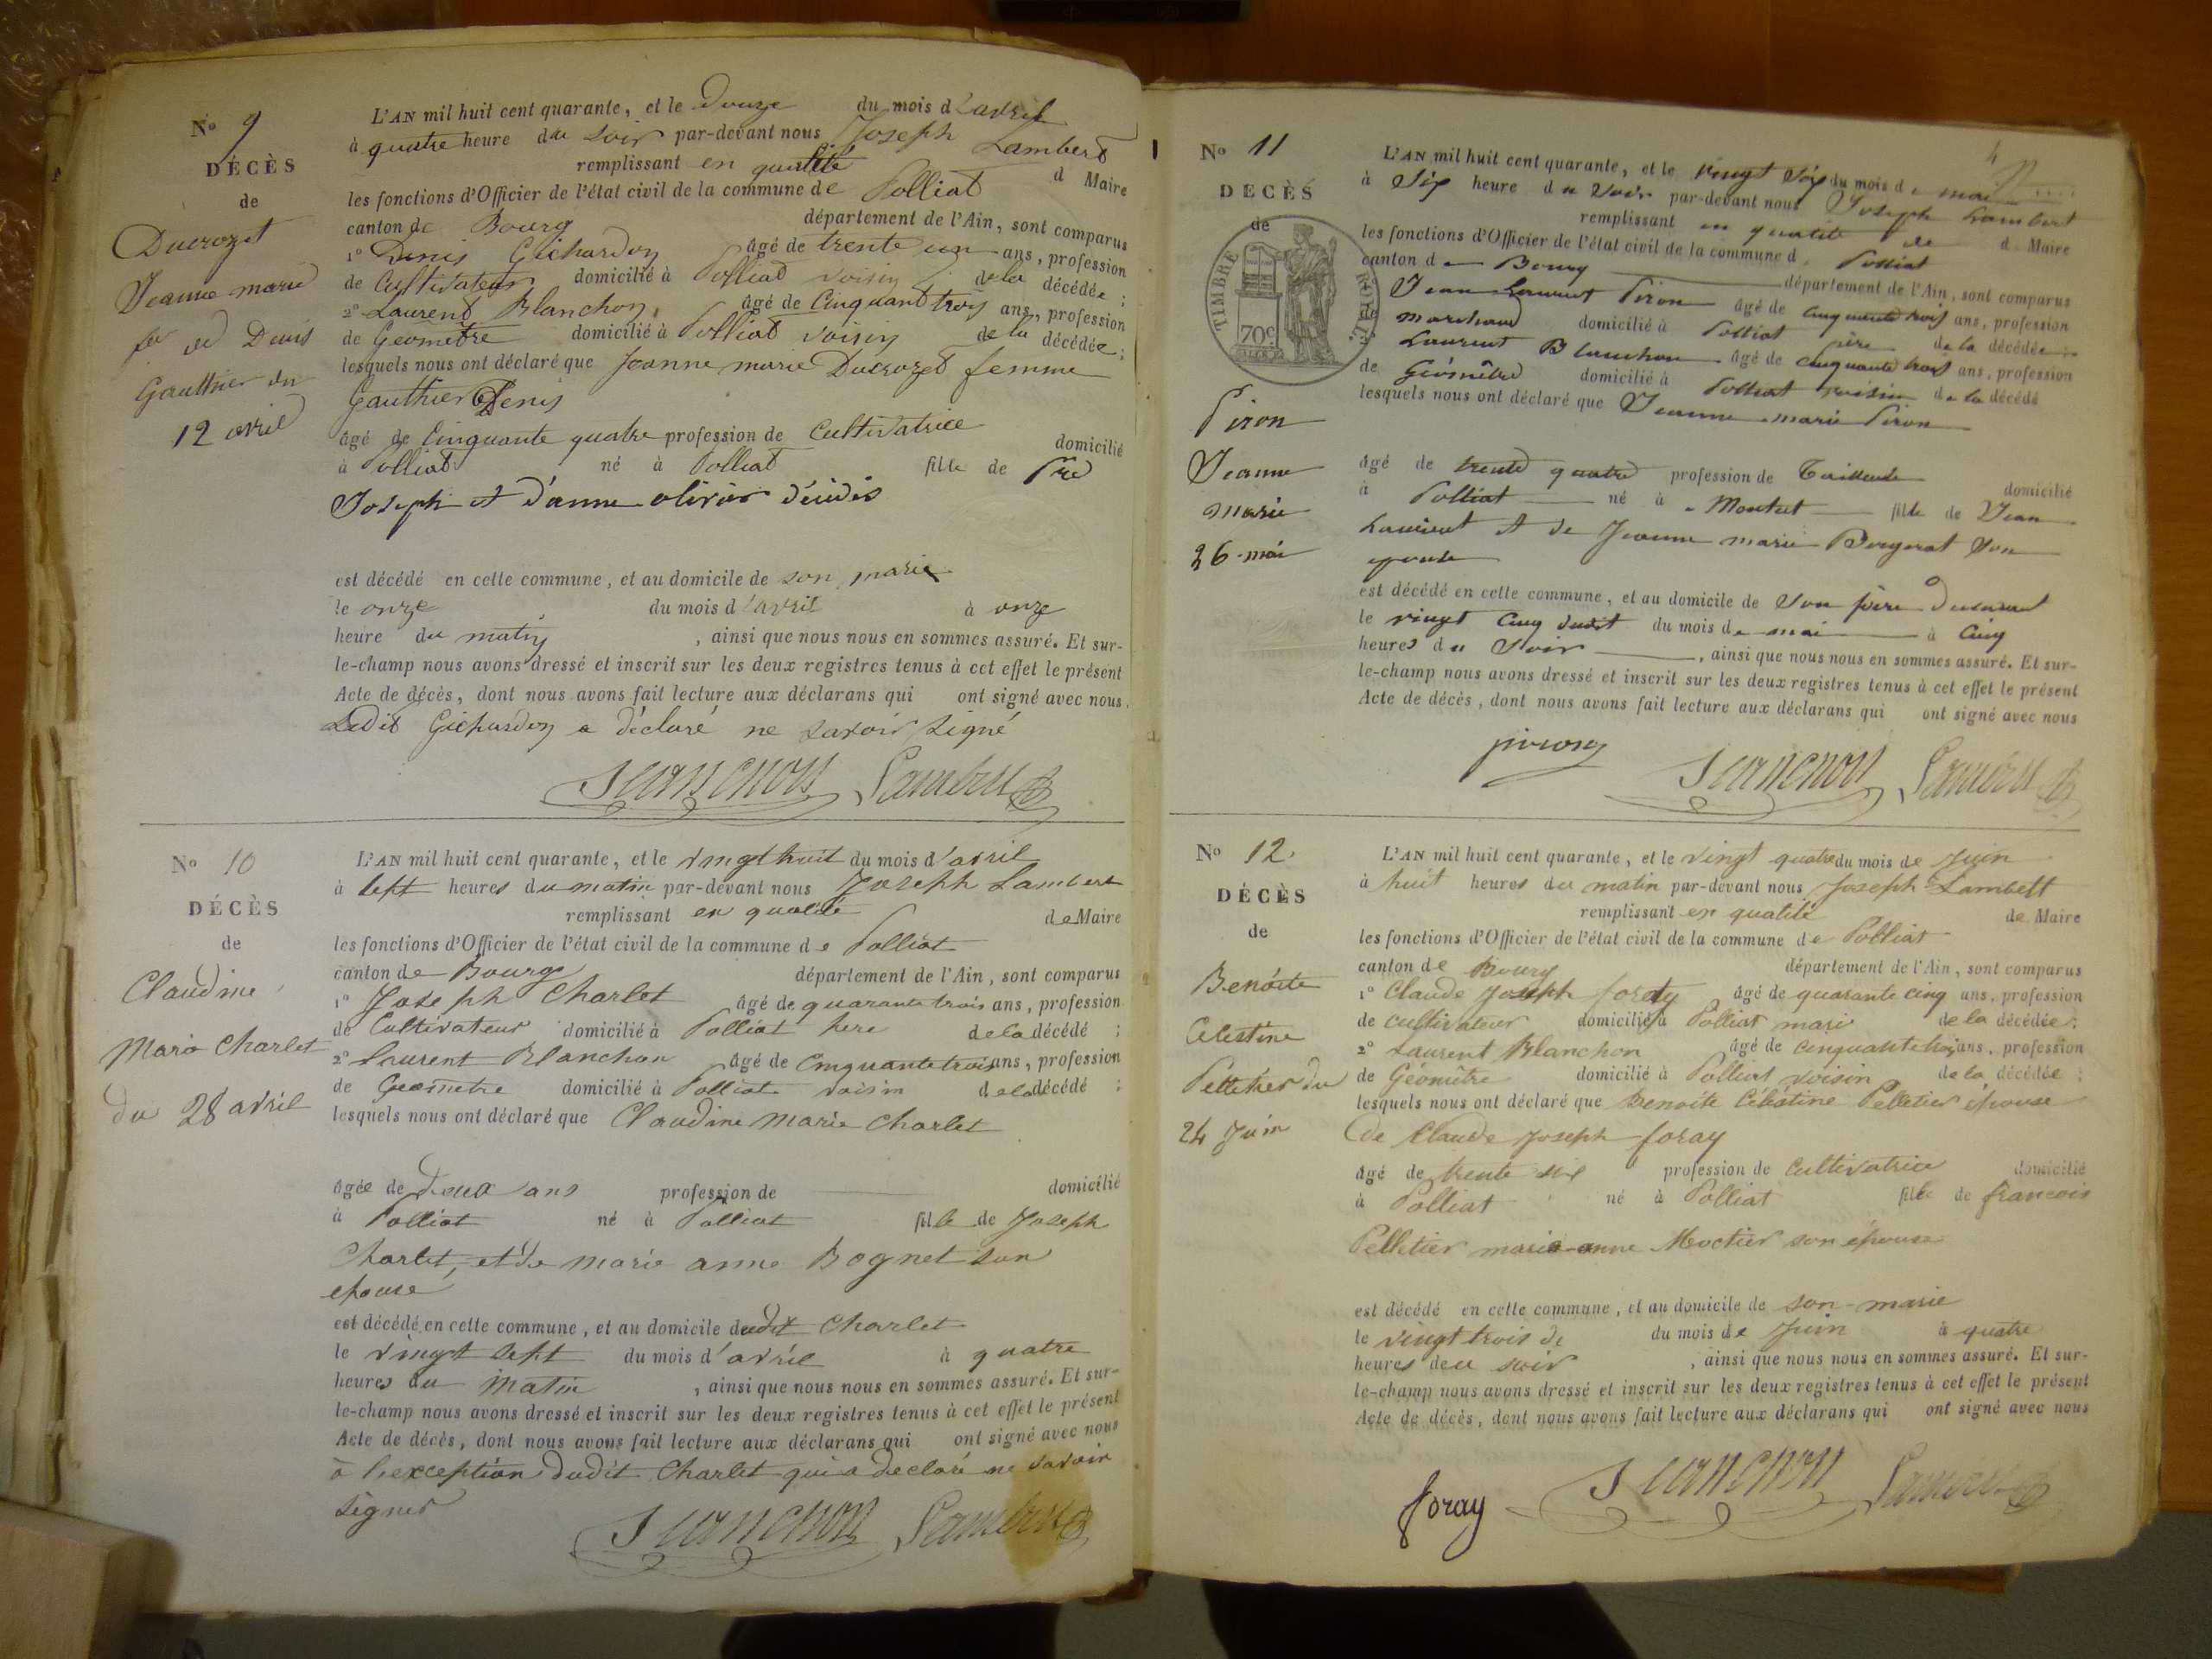 No 9
DÉCÈS
de
Ducrozet
Jeanne marie
fe de Denis
Gauthier du
12 avril
L'AN mil huit cent quarante, et le Douze du mois d'avril
à quatre heure du soir par-devant nous Joseph Lambert
remplissant en qualité d Maire
les fonctions d'Officier de l'état civil de la commune de Polliat
canton de Bourg département de l'Ain, sont comparus
1° Denis Gichardon âgé de trente un ans, profession
de Cultivateur domicilié à Polliat voisin de la décédée;
2° Laurent Blanchon, âgé de Cinquant troy ans, profession
de Geometre domicilié à Polliat voisin de la décédée;
lesquels nous ont déclaré que Jeanne marie Ducrozet femme
Gauthier Denis
âgé de Cinquante quatre profession de Cultivatrice domicilié
à Polliat né à Polliat fille de Pre
Joseph et d'anne olivier décidés
est décédé en cette commune, et au domicile de son marie
le onze du mois d'avril à onze
heure du matin, ainsi que nous nous en sommes assuré. Et sur-
le-champ nous avons dressé et inscrit sur les deux registres tenus à cet effet le présent
Acte de décès, dont nous avons fait lecture aux déclarans qui ont signé avec nous.
Ledit Gichardon a déclaré ne savoir signé
Blanchon Lambert
No 10
DÉCÈS
de
Claudine
Marie Charlet
du 28 avril
L'AN mil huit cent quarante, et le vingt huit du mois d'avril
à sept heures du matin par-devant nous Joseph Lambert
remplissant en qualité de Maire
les fonctions d'Officier de l'état civil de la commune de Polliat
canton de Bourg département de l'Ain, sont comparus
1° Joseph Charlet âgé de quarante trois ans, profession
de Cultivateur domicilié à Polliat pere de la décédé;
2° Laurent Blanchon âgé de Cinquante trois ans, profession
de Geometre domicilié à Polliat voisin de la décédé;
lesquels nous ont déclaré que Claudine Marie Charlet
âgée de Deux ans profession de domicilié
à Polliat né à Polliat fille de Joseph
Charlet, et de marie anne Bognet son
epouse
est décédé en cette commune, et au domicile dudit Charlet
le vingt sept du mois d'avril à quatre
heures du matin, ainsi que nous nous en sommes assuré. Et sur-
le-champ nous avons dressé et inscrit sur les deux registres tenus à cet effet le présent
Acte de décès, dont nous avons fait lecture aux déclarans qui ont signé avec nous
à l'exception dudit Charlet qui a declaré ne savoir
signer
Blanchon Lambert
No 11
DECÈS
de
TIMBRE ROYAL
70c
Piron
Jeanne
marie
26 mai
L'AN mil huit cent quarante, et le vingt six du mois de mai
à Six heure du Soir par-devant nous Joseph Lambert
remplissant en qualité de d Maire
les fonctions d'Officier de l'état civil de la commune d Polliat
canton de Bourg département de l'Ain, sont comparus
Jean Laurent Piron âgé de Cinquante trois ans, profession
marchand domicilié à Polliat père de la décédée;
Laurent Blanchon âgé de cinquante trois ans, profession
de Géomêtre domicilié à Polliat voisin de la décédé
lesquels nous ont déclaré que Jeanne marie Piron
âgé de trente quatre profession de Tailleuse domicilié
à Polliat né à Montcet fille de Jean
Laurent et de Jeanne marie Bergerat Son
epouse
est décédé en cette commune, et au domicile de Son père
le vingt Cinq dudit du mois de mai à Cinq
heures du Soir, ainsi que nous nous en sommes assuré. Et sur-
le-champ nous avons dressé et inscrit sur les deux registres tenus à cet effet le présent
Acte de décès, dont nous avons fait lecture aux déclarans qui ont signé avec nous
piron Blanchon Lambert
No 12.
DÉCÈS
de
Benoite
Celestine
Pelletier du
24 Juin
L'AN mil huit cent quarante, et le vingt quatre du mois de Juin
à huit heures du matin par-devant nous Joseph Lambert
remplissant en qualité de Maire
les fonctions d'Officier de l'état civil de la commune de Polliat
canton de Bourg département de l'Ain, sont comparus
1° Claude Joseph foray âgé de quarante cinq ans, profession
de cultivateur domicilié à Polliat mari de la décédée;
2° Laurent Blanchon âgé de cinquante trois ans, profession
de Géomêtre domicilié à Polliat voisin de la décédée;
lesquels nous ont déclaré que Benoite Célestine Pelletier épouse
de Claude Joseph foray
âgé de trente six profession de Cultivatrice domicilié
à Polliat né à Polliat fille de francois
Pelletier marie anne Moctier son épouse
est décédé en cette commune, et au domicile de son marie
le vingt trois de du mois de Juin à quatre
heures deu soir, ainsi que nous nous en sommes assuré. Et sur-
le-champ nous avons dressé et inscrit sur les deux registres tenus à cet effet le présent
Acte de décès, dont nous avons fait lecture aux déclarans qui ont signé avec nous
foray Blanchon Lambert